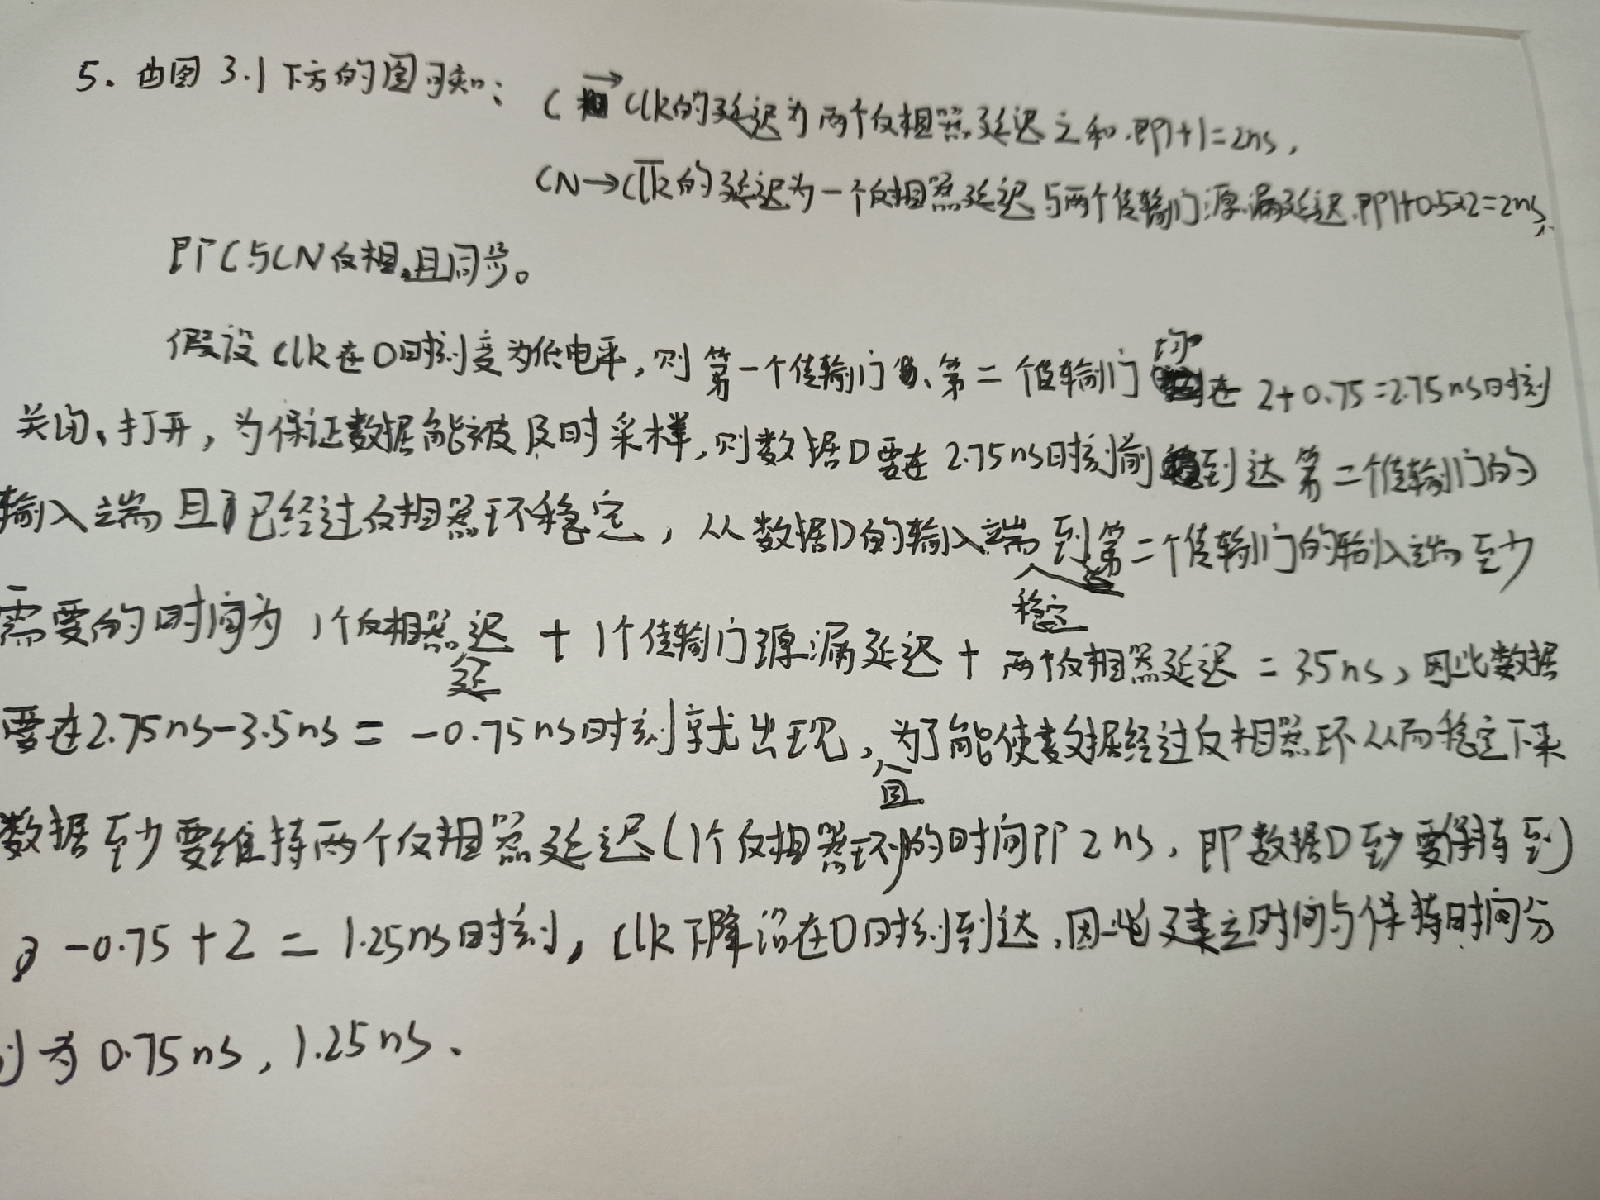 5. 由图 3.1 下方的图可知: C → Clk的延迟为两个反相器延迟之和.即1+1=2ns,
CN→C̅l̅k̅的延迟为一个反相器延迟与两个传输门源漏延迟.即1+0.5×2=2ns,
即C与CN反相,且同步。
假设Clk在0时刻变为低电平,则第一个传输门、第二个传输门均在 2+0.75=2.75ns时刻
关闭、打开,为保证数据能被及时采样,则数据D要在2.75ns时刻前到达第二个传输门的
输入端且已经过反相器环稳定,从数据D的输入端到第二个传输门的输入端稳定至少
需要的时间为 1个反相器延迟 + 1个传输门源漏延迟 + 两个反相器延迟 = 3.5ns,因此数据
要在2.75ns-3.5ns = -0.75ns时刻就出现,且为了能使数据经过反相器环从而稳定下来
数据至少要维持两个反相器延迟(1个反相器环)的时间即2ns,即数据D至少要保持到
-0.75+2 = 1.25ns时刻,Clk下降沿在0时刻到达,因此建立时间与保持时间分
别为 0.75ns, 1.25ns.